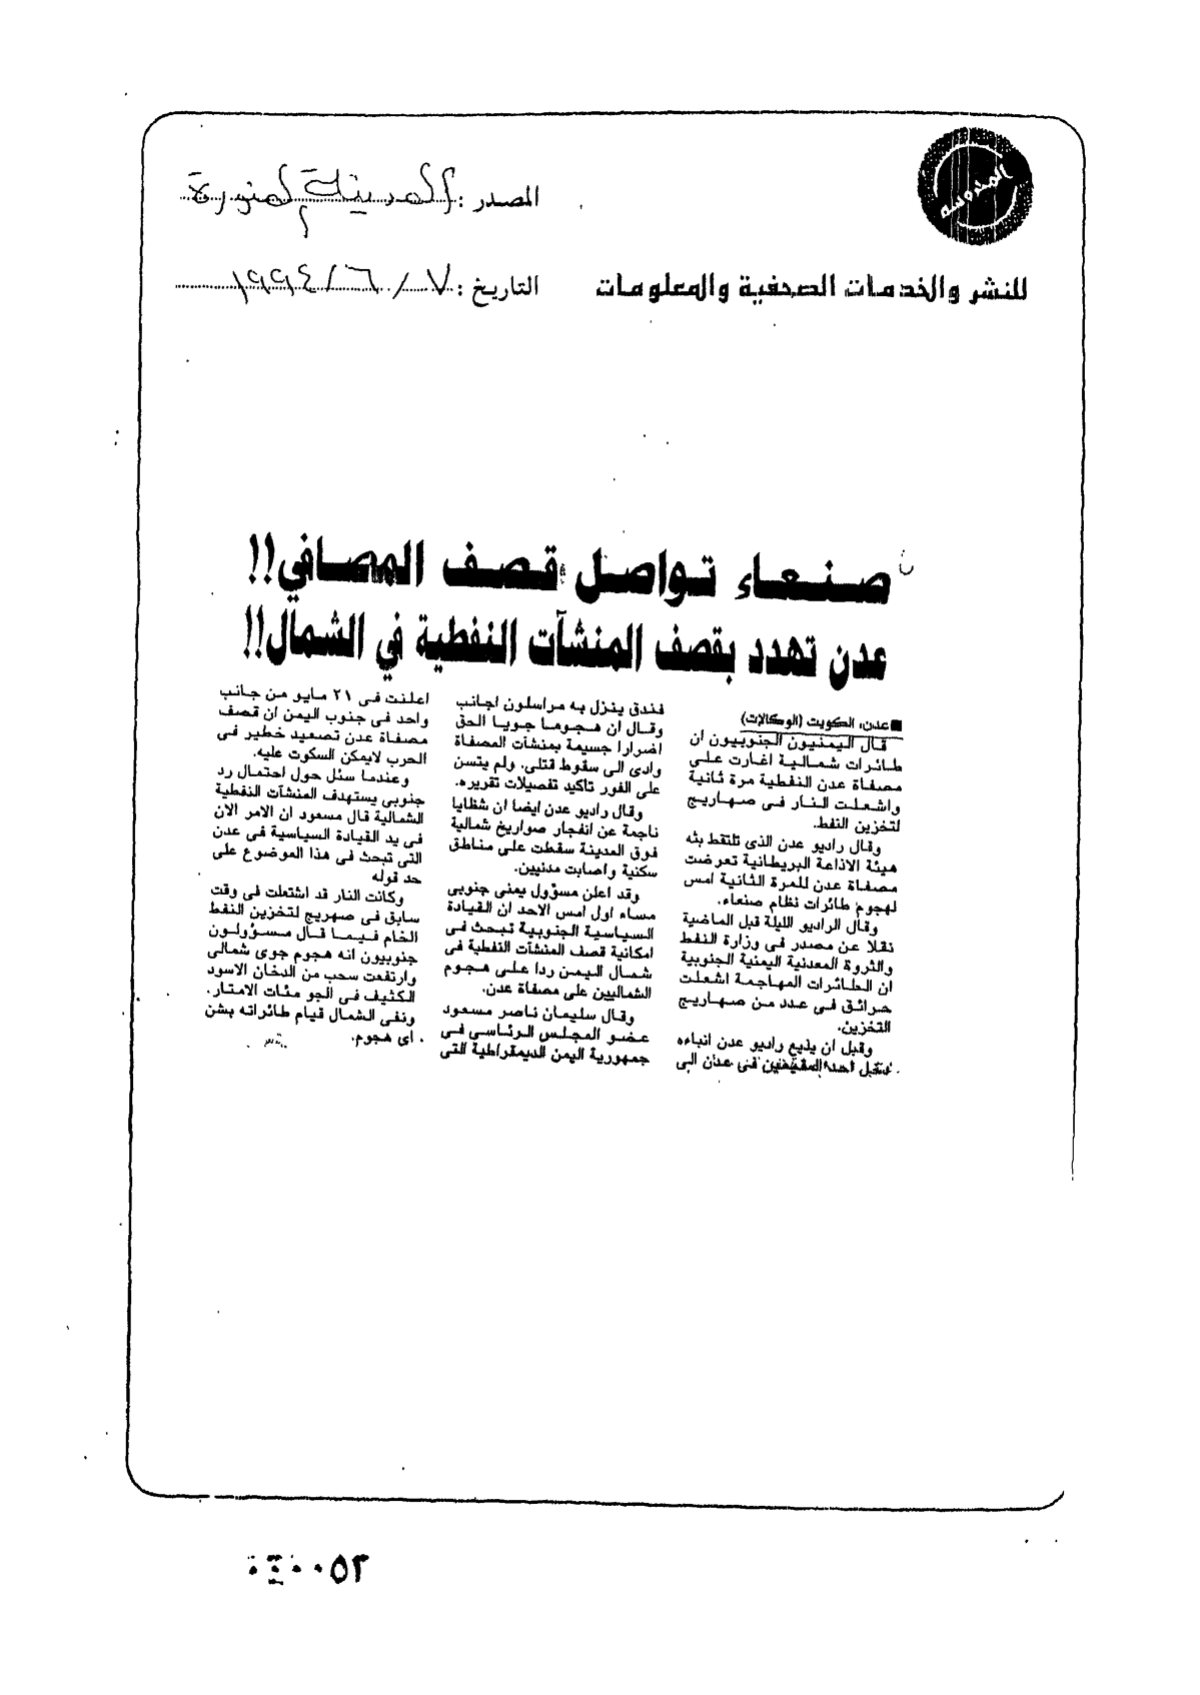 المدروسه
المصدر : المدينة المنورة
للنشر والخدمات الصحفية والمعلومات
التاريخ : ٧ / ٦ / ١٩٩٤
صنعاء تواصل قصف المصافي!!
عدن تهدد بقصف المنشآت النفطية في الشمال!!
■ عدن، الكويت (الوكالات)
قال اليمنيون الجنوبيون ان
طائرات شمالية اغارت على
مصفاة عدن النفطية مرة ثانية
واشعلت النار فى صهاريج
لتخزين النفط.
وقال راديو عدن الذى تلتقط بثه
هيئة الاذاعة البريطانية تعرضت
مصفاة عدن للمرة الثانية امس
لهجوم طائرات نظام صنعاء.
وقال الراديو الليلة قبل الماضية
نقلا عن مصدر فى وزارة النفط
والثروة المعدنية اليمنية الجنوبية
ان الطائرات المهاجمة اشعلت
حرائق فى عدد من صهاريج
التخزين.
وقبل ان يذيع راديو عدن انباءه
احد المقيمين فى عدن الى
فندق ينزل به مراسلون اجانب
وقال ان هجوما جويا الحق
اضرارا جسيمة بمنشآت المصفاة
وادى الى سقوط قتلى. ولم يتسن
على الفور تاكيد تفصيلات تقريره.
وقال راديو عدن ايضا ان شظايا
ناجمة عن انفجار صواريخ شمالية
فوق المدينة سقطت على مناطق
سكنية واصابت مدنيين.
وقد اعلن مسؤول يمنى جنوبى
مساء اول امس الاحد ان القيادة
السياسية الجنوبية تبحث فى
امكانية قصف المنشآت النفطية فى
شمال اليمن ردا على هجوم
الشماليين على مصفاة عدن.
وقال سليمان ناصر مسعود
عضو المجلس الرئاسى فى
جمهورية اليمن الديمقراطية التى
اعلنت فى ٢١ مايو من جانب
واحد فى جنوب اليمن ان قصف
مصفاة عدن تصعيد خطير فى
الحرب لايمكن السكوت عليه.
وعندما سئل حول احتمال رد
جنوبى يستهدف المنشآت النفطية
الشمالية قال مسعود ان الامر الان
فى يد القيادة السياسية فى عدن
التى تبحث فى هذا الموضوع على
حد قوله
وكانت النار قد اشتعلت فى وقت
سابق فى صهريج لتخزين النفط
الخام فيما قال مسؤولون
جنوبيون انه هجوم جوى شمالى
وارتفعت سحب من الدخان الاسود
الكثيف فى الجو مئات الامتار.
ونفى الشمال قيام طائراته بشن
اى هجوم.